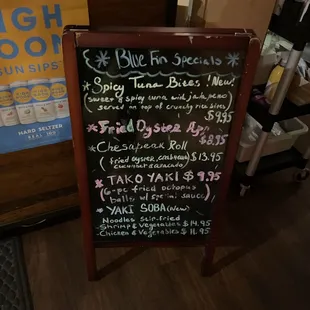 IGH
OON
SUN SIPS
HARD SELTZER
* Blue Fin Specials *
* Spicy Tuna Bites! New!
(sweet & spicy tuna with jalapeno
served on top of crunchy rice bites)
$9.95
* Fried Oyster App.
$8.95
* Chesapeak Roll
(fried oyster, crab
cucumber avocado) $13.95
* TAKO YAKI $9.95
(6-pc fried octopus
balls w/ special sauce)
* YAKI SOBA (New)
Noodles stir-fried
Shrimp & Vegetables $14.95
Chicken & Vegetables $11.95